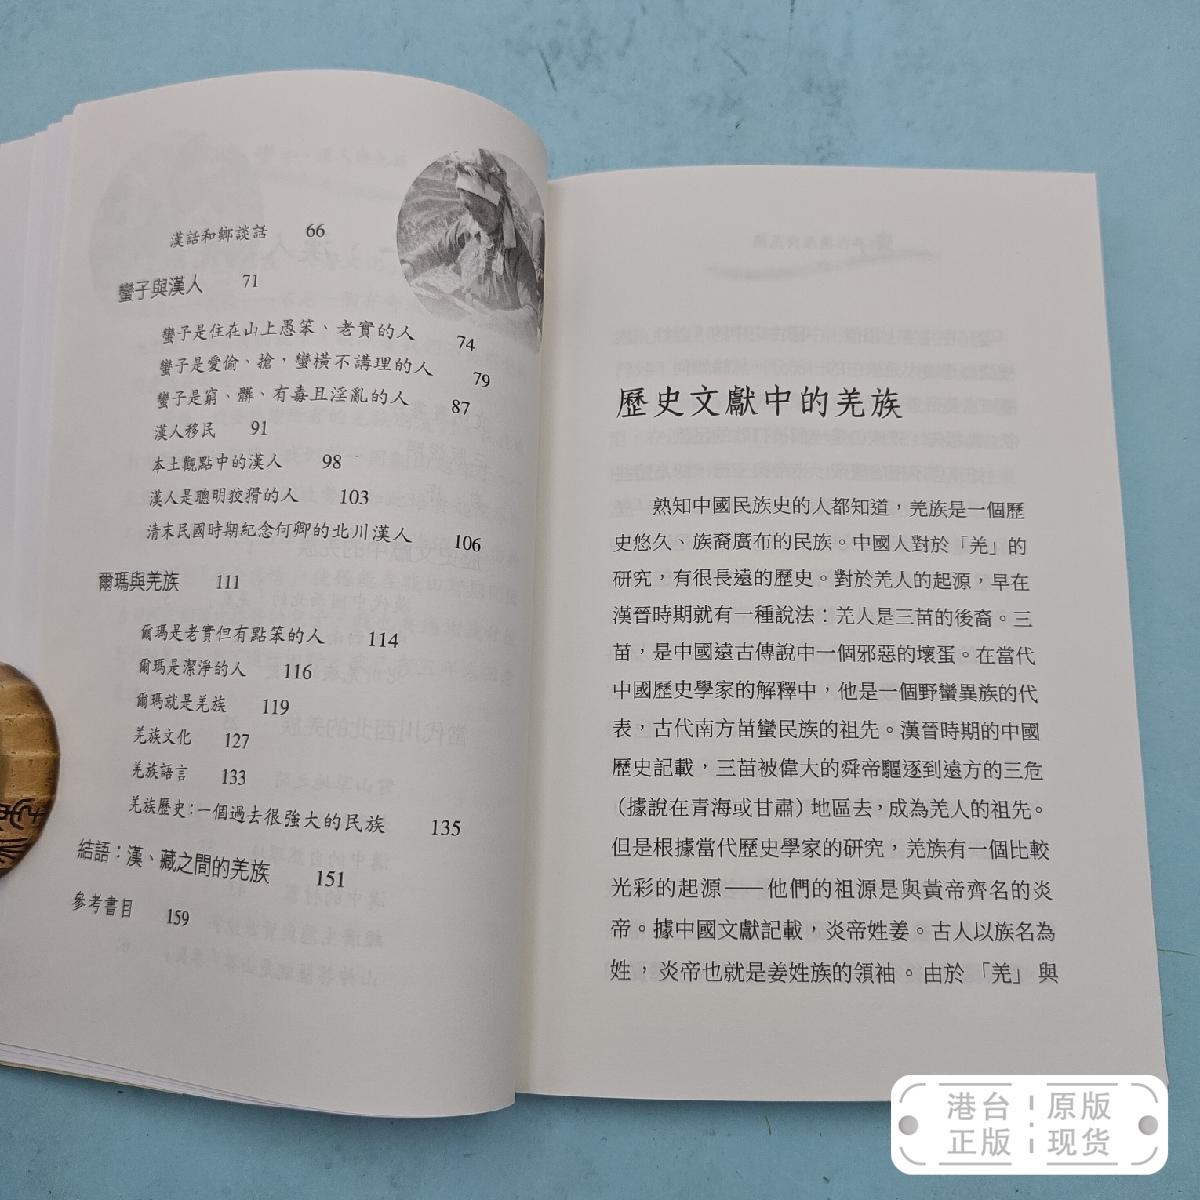 漢話和鄉談話 66
蠻子與漢人 71
蠻子是住在山上愚笨、老實的人 74
蠻子是愛偷、搶，蠻橫不講理的人 79
蠻子是窮、髒、有毒且淫亂的人 87
漢人移民 91
本土觀點中的漢人 98
漢人是聰明狡猾的人 103
清末民國時期紀念何卿的北川漢人 106
爾瑪與羌族 111
爾瑪是老實但有點笨的人 114
爾瑪是潔淨的人 116
爾瑪就是羌族 119
羌族文化 127
羌族語言 133
羌族歷史：一個過去很強大的民族 135
結語：漢、藏之間的羌族 151
參考書目 159
歷史文獻中的羌族
熟知中國民族史的人都知道，羌族是一個歷
史悠久、族裔廣布的民族。中國人對於「羌」的
研究，有很長遠的歷史。對於羌人的起源，早在
漢晉時期就有一種說法：羌人是三苗的後裔。三
苗，是中國遠古傳說中一個邪惡的壞蛋。在當代
中國歷史學家的解釋中，他是一個野蠻異族的代
表，古代南方苗蠻民族的祖先。漢晉時期的中國
歷史記載，三苗被偉大的舜帝驅逐到遠方的三危
（據說在青海或甘肅）地區去，成為羌人的祖先。
但是根據當代歷史學家的研究，羌族有一個比較
光彩的起源——他們的祖源是與黃帝齊名的炎
帝。據中國文獻記載，炎帝姓姜。古人以族名為
姓，炎帝也就是姜姓族的領袖。由於「羌」與
港台 原版
正版 现货